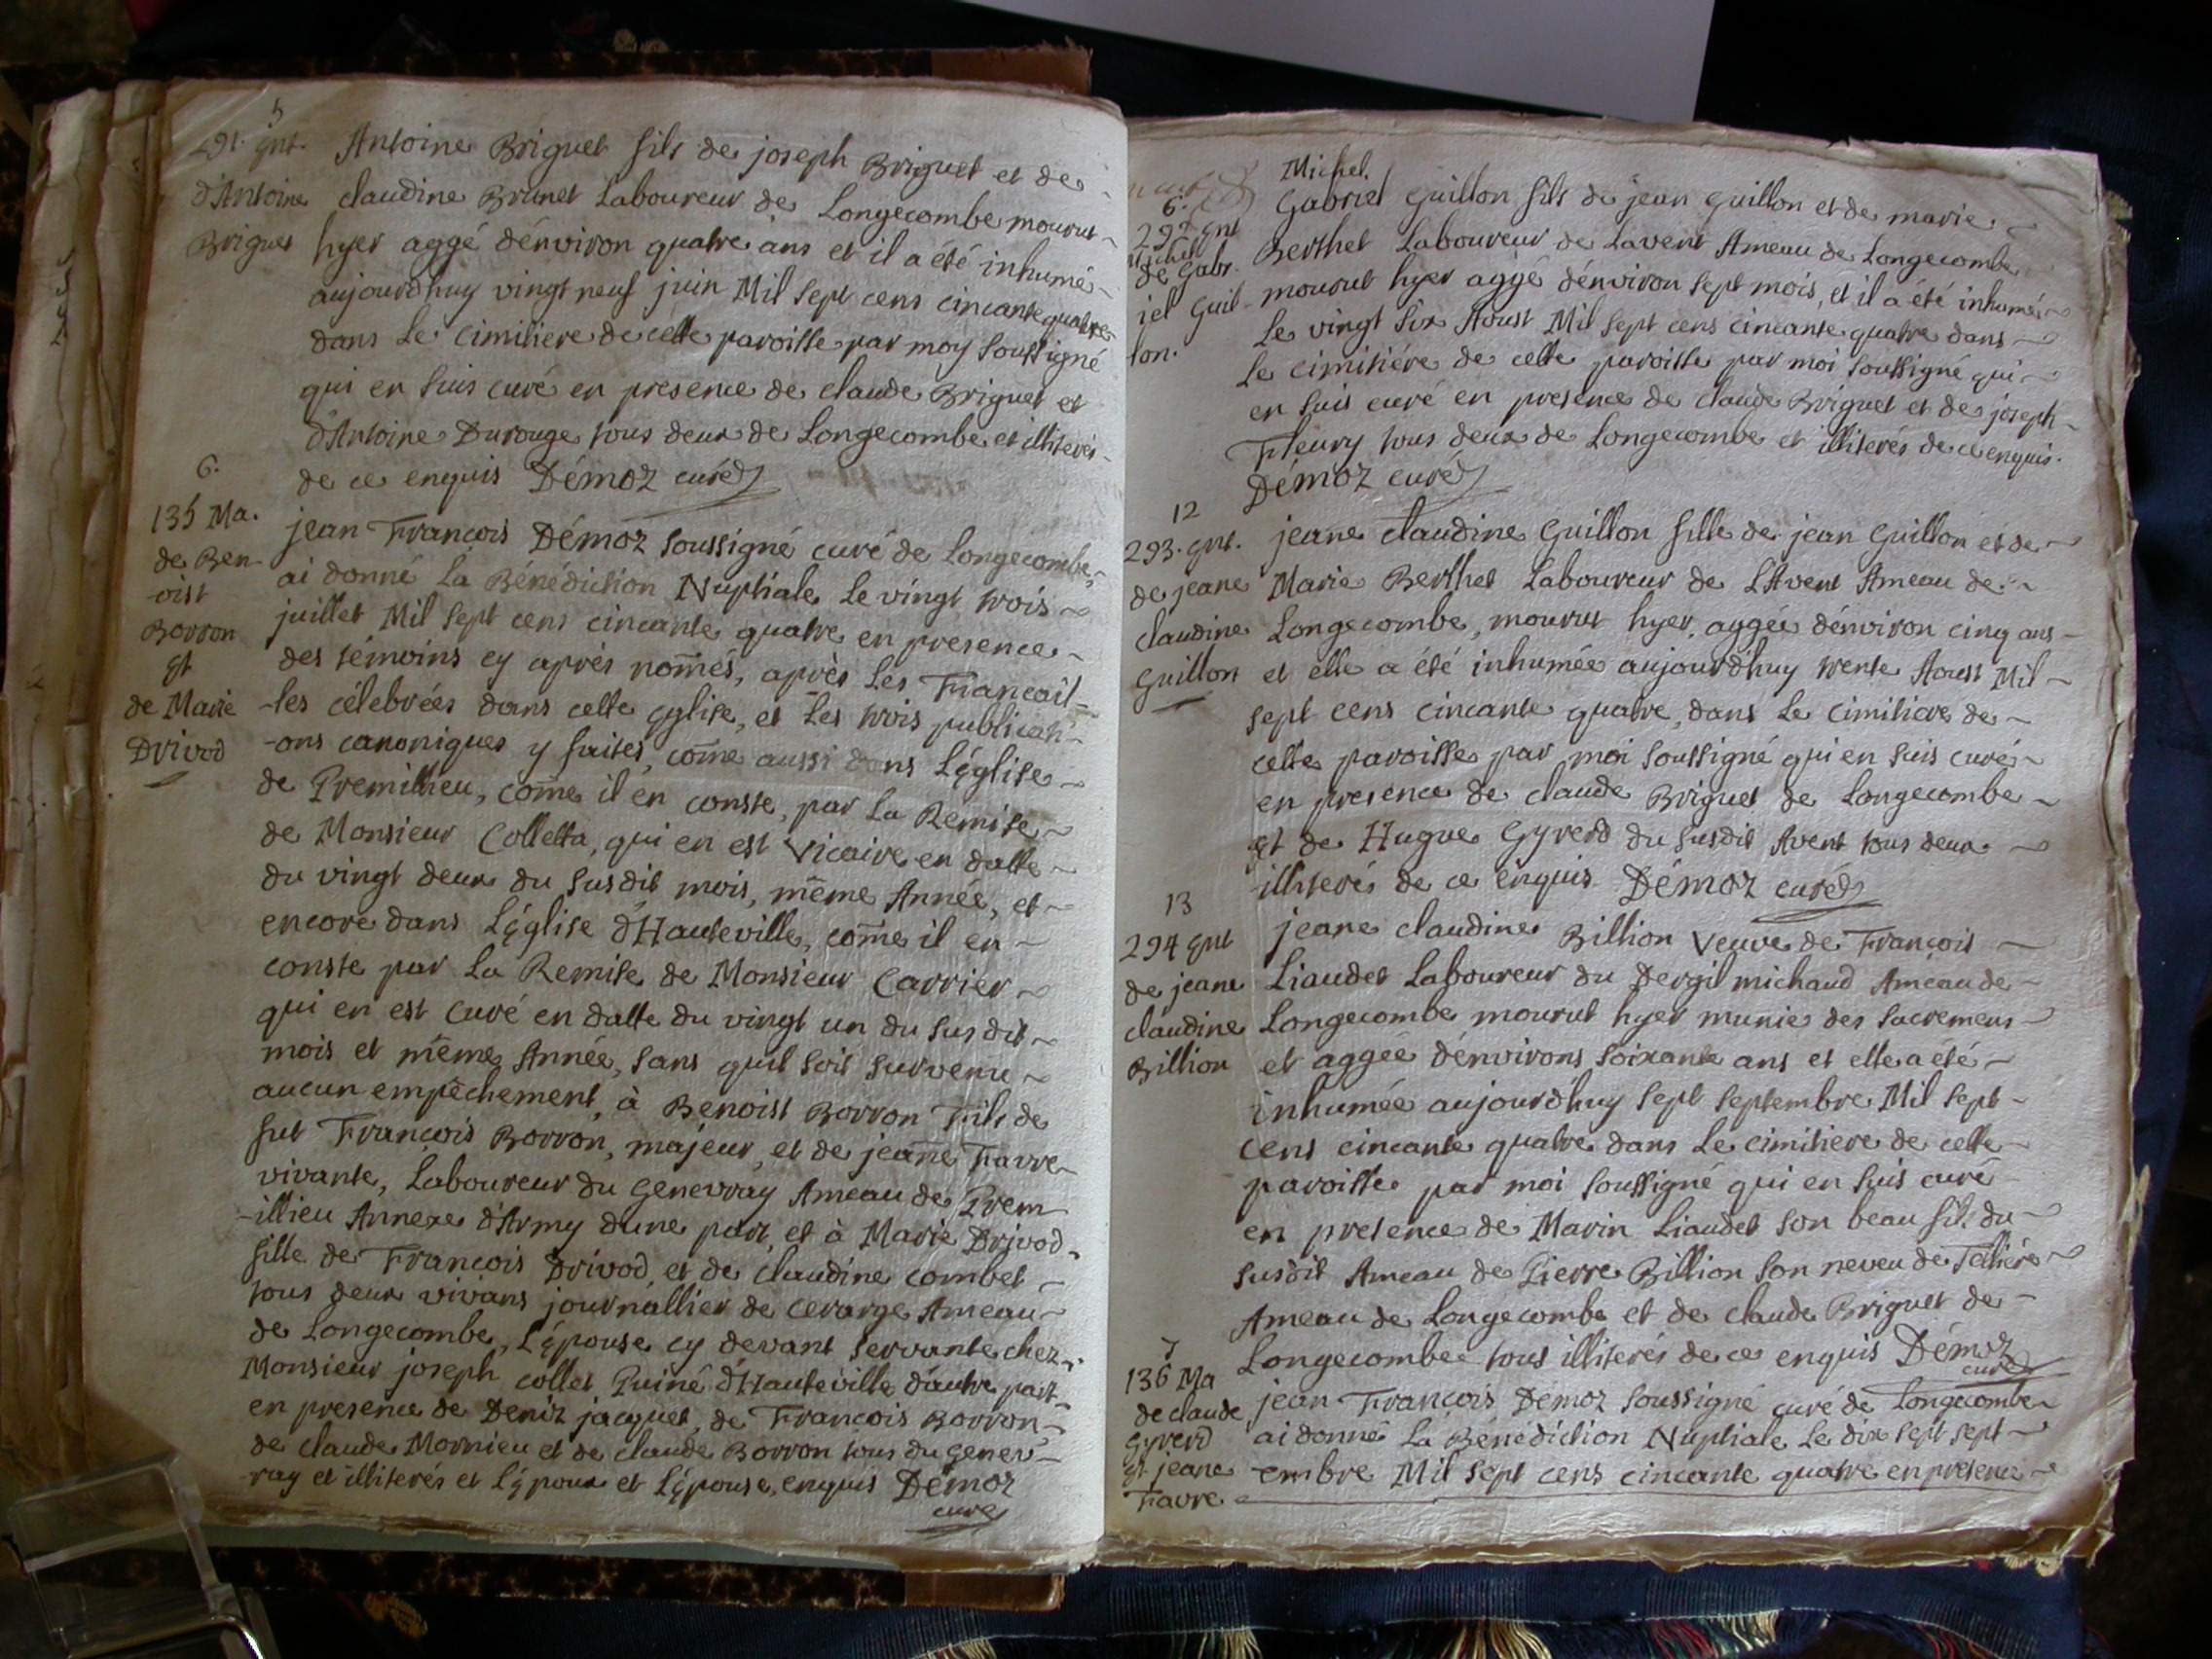 5
291. Ent.
d'Antoine
Briguet
Antoine Briguet fils de joseph Briguet et de
claudine Brunet Laboureur de Longecombe mourut
hyer aggé dénviron quatre ans et il a été inhumé
aujourdhuy vingt neuf juin Mil sept cens cincante quatre
dans Le cimitiere de cette paroisse par moy soussigné
qui en suis curé en presence de claude Briguet et
d'Antoine Durouge tous deux de Longecombe et illiterés
de ce enquis Démoz curé
6.
135 Ma.
de Ben-
-oist
Borron
Et
de Marie
Drivod
jean François Démoz soussigné curé de Longecombe,
ai donné La Bénédiction Nuptiale Le vingt trois
juillet Mil sept cens cincante quatre en presence
des témoins cy après nom̃és, après Les Fiançail-
-les célebrées dans cette Eglise, et Les trois publicati-
-ons canoniques y faites, com̃e aussi dans L'Eglise
de Premillieu, com̃e il en conste, par La Remise
de Monsieur Colletta, qui en est Vicaire en datte
du vingt deux du susdit mois, même Année, et
encore dans L'Eglise d'Hauteville, com̃e il en
conste par La Remise de Monsieur Carrier
qui en est curé en datte du vingt un du susdit
mois et même Année, sans quil soit survenu
aucun empêchement, à Benoist Borron Fils de
fut François Borron, majeur, et de jeañe Favre
vivante, Laboureur du Genevray Ameau de Prem
-illieu Annexe d'Army dune part, et à Marie Drivod
fille de François Drivod, et de claudine combet
tous deux vivans journallier de cerarge Ameau
de Longecombe, L'Epouse cy devant servante chez
Monsieur joseph collet Puiné d'Hauteville d'autre part
en presence de Deniz jacquet, de François Borron
de claude Mornieu et de claude Borron tous du Genev-
-ray et illiterés et L'Epoux et L'Epouse, enquis Démoz
curé
6.
292 Ent
Michel
de Gabr.
iel Guil-
lon.
Michel.
Gabriel Guillon fils de jean Guillon et de marie
Berthet Laboureur de Lavent Ameau de Longecombe
mourut hyer aggé dénviron sept mois, et il a été inhumé
Le vingt six Aoust Mil sept cens cincante quatre dans
Le cimitiére de cette paroisse par moi soussigné qui
en suis curé en presence de claude Briguet et de joseph
Fleury tous deux de Longecombe et illiterés de ce enquis.
Démoz curé
12
293. Ent.
de jeane
claudine
Guillon
jeane claudine Guillon fille de jean Guillon et de
Marie Berthet Laboureur de L'Avent Ameau de
Longecombe, mourut hyer, aggée dénviron cinq ans
et elle a été inhumée aujourd'huy trente Aoust Mil
sept cens cincante quatre, dans Le cimitiere de
cette paroisse par moi soussigné qui en suis curé
en presence de claude Briguet de Longecombe
Et de Hugue Gyrerd du susdit Avent tous deux
illiterés de ce enquis Démoz curé
13
294 Ent
de jeane
claudine
Billion
jeane claudine Billion Veuve de François
Liaudet Laboureur du Dergil michaud Ameau de
Longecombe mourut hyer munie des sacremens
et aggée dénvirons soixante ans et elle a été
inhumée aujourdhuy sept septembre Mil sept
cens cincante quatre dans Le cimitiere de cette
paroisse par moi soussigné qui en suis curé
en presence de Marin Liaudet son beau fils du
susdit Ameau de Pierre Billion son neveu de
Ameau de Longecombe et de claude Briguet de
Longecombe tous illiterés de ce enquis Démoz
curé
7
136 Ma
de claude
Gyrerd
Et jeane
Favre
jean François Démoz soussigné curé de Longecombe
ai donné La Bénédiction Nuptiale Le dix sept sept
embre Mil sept cens cincante quatre en presence